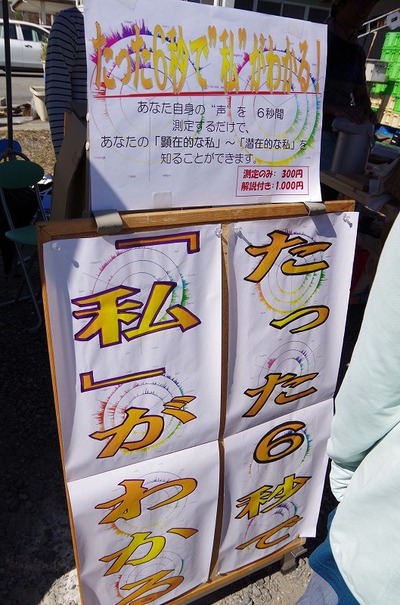 たった6秒で"私"がわかる!
あなた自身の “声” を 6秒間
測定するだけで、
あなたの「顕在的な私」~「潜在的な私」を
知ることができます。
測定のみ: 300円
解説付き:1,000円
たった6秒で
「私」がわかる